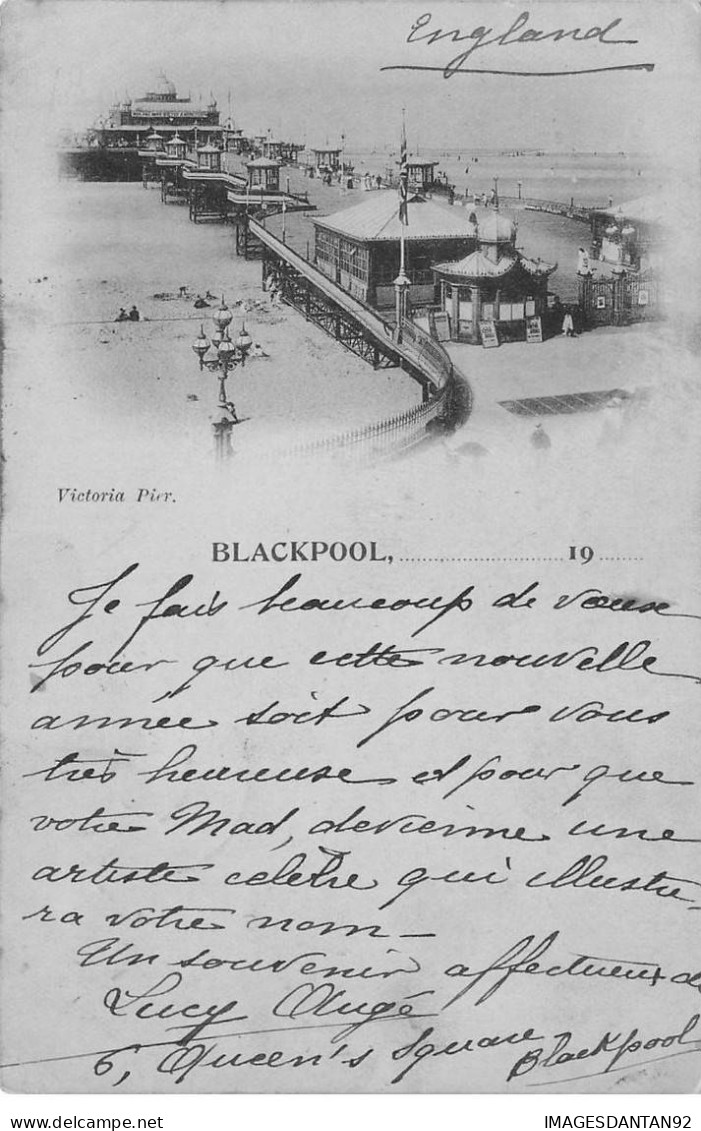 England
Victoria Pier.
BLACKPOOL, 19
Je fais beaucoup de vœux
pour que cette nouvelle
année soit pour vous
très heureuse et pour que
votre Mad, devienne une
artiste célèbre qui illustre-
ra votre nom —
Un souvenir affectueux de
Lucy Augé
6, Queen's Square Blackpool
IMAGESDANTAN92